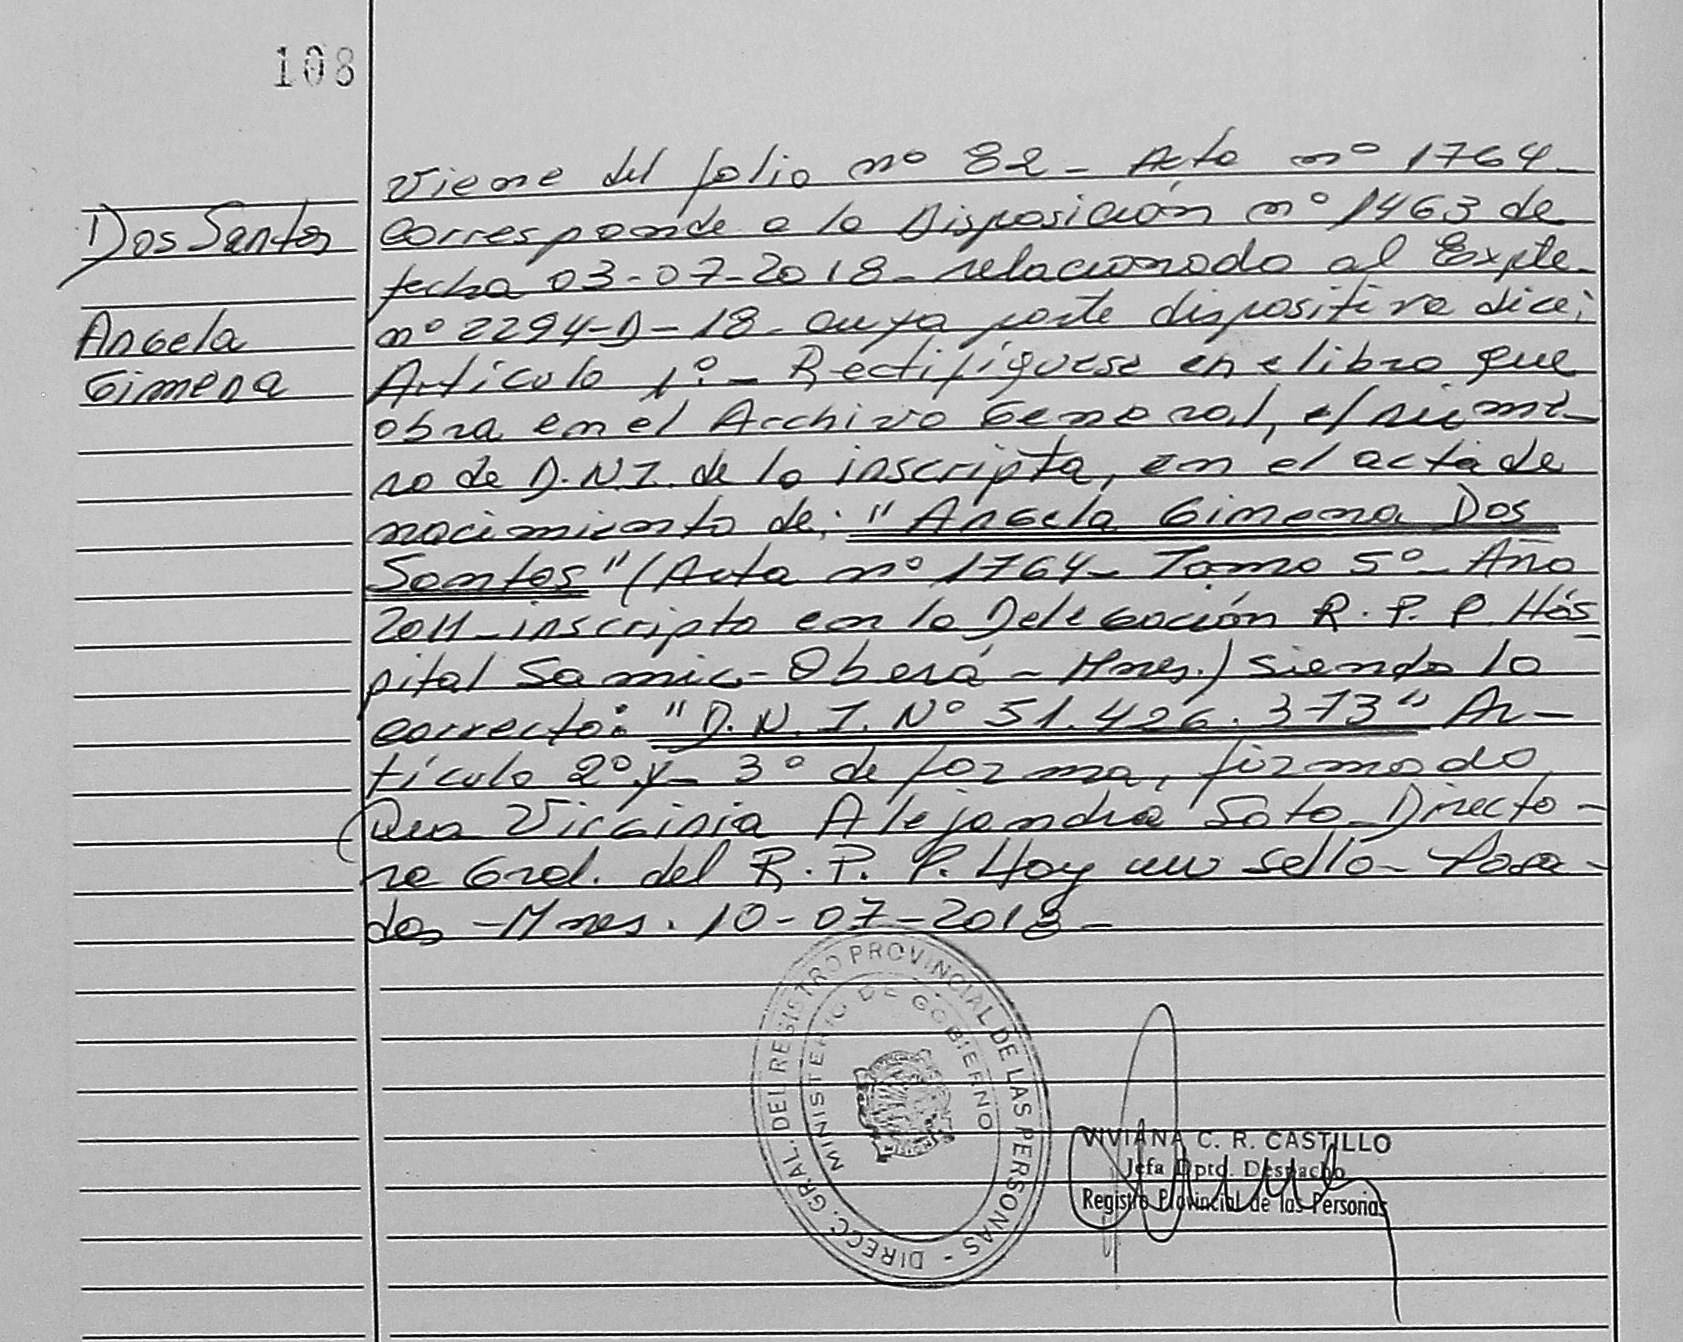 108
Dos Santos
Angela
Gimena
Viene del folio nº 82 - Acta nº 1764 -
Corresponde a la Disposición nº 1463 de
fecha 03-07-2018 - relacionado al Expte.
nº 2294-D-18 - cuya parte dispositiva dice:
Artículo 1º - Rectifíquese en el libro que
obra en el Archivo General, el núme-
ro de D.N.I. de la inscripta, en el acta de
nacimiento de: "Angela Gimena Dos
Santos" (Acta nº 1764 - Tomo 5º - Año
2011 - inscripta en la Delegación R.P.P. Hós
pital Samic - Oberá - Mnes.) siendo lo
correcto: "D.N.I. Nº 51.426.373" Ar-
tículo 2º y - 3º de forma, firmado
Dra Virginia Alejandra Soto - Directo-
ra Gral. del R.P.P. Hay un sello - Posa-
das - Mnes. 10-07-2018 -
DIRECC. GRAL. DEL REGISTRO PROVINCIAL DE LAS PERSONAS -
MINISTERIO DE GOBIERNO
VIVIANA C. R. CASTILLO
Jefa Dpto. Despacho
Registro Provincial de las Personas